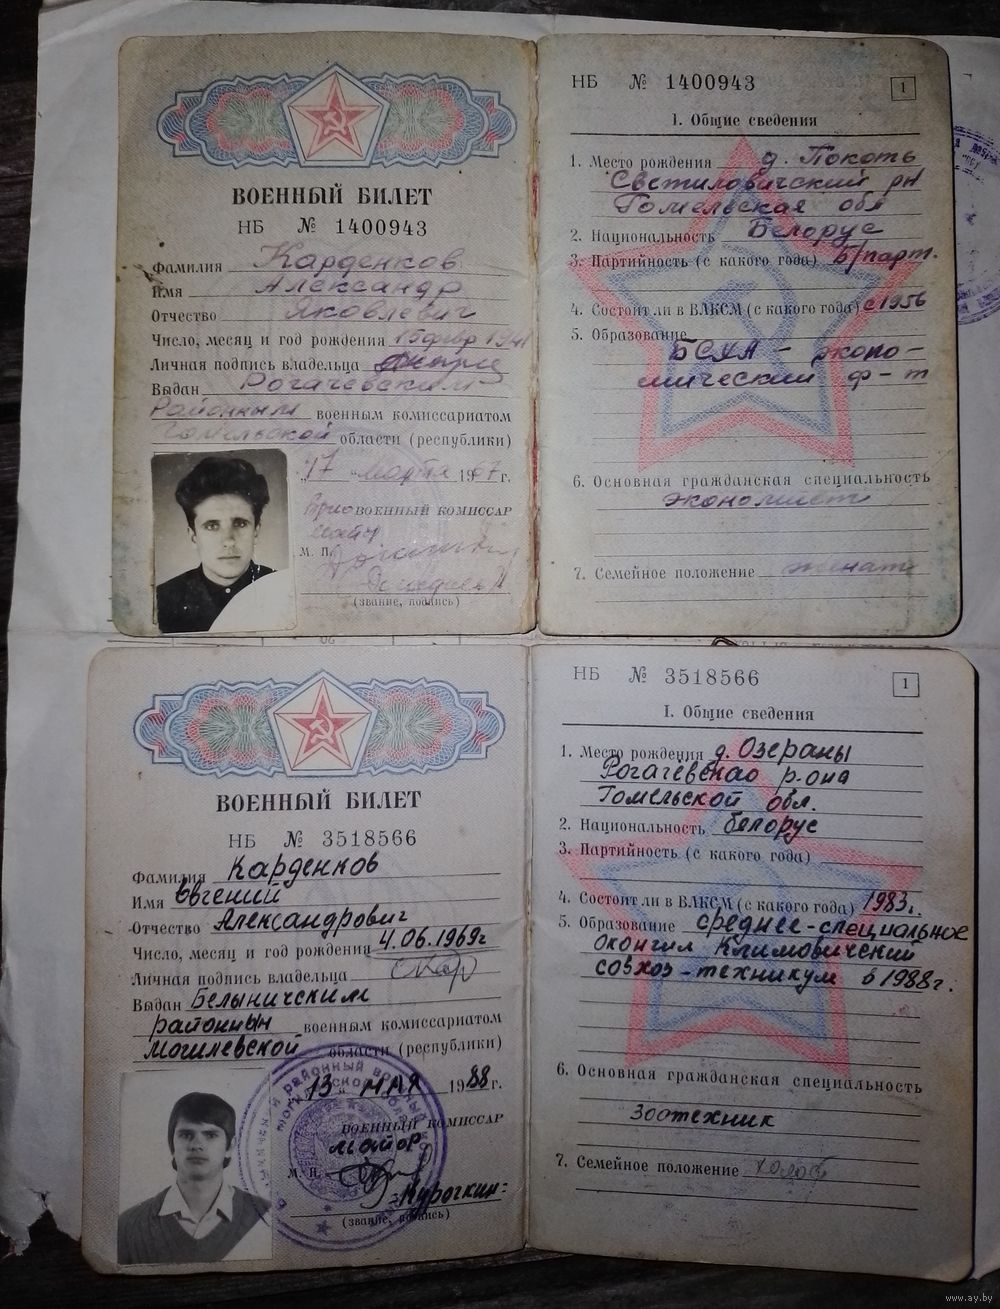 ВОЕННЫЙ БИЛЕТ
НБ № 1400943
Фамилия Карденков
Имя Александр
Отчество Яковлевич
Число, месяц и год рождения 15 февр 1941
Личная подпись владельца
Выдан Рогачевским
Районным военным комиссариатом
Гомельской области (республики)
"17" марта 1967 г.
Врио ВОЕННЫЙ КОМИССАР
М. П.
(звание, подпись)
НБ № 1400943
1
I. Общие сведения
1. Место рождения д. Покоть
Светиловичский рн
Гомельская обл
2. Национальность Белорус
3. Партийность (с какого года) б/парт.
4. Состоит ли в ВЛКСМ (с какого года) с 1956
5. Образование
БСХА – эконо-
мический ф-т
6. Основная гражданская специальность
экономист
7. Семейное положение женат
ВОЕННЫЙ БИЛЕТ
НБ № 3518566
Фамилия Карденков
Имя Евгений
Отчество Александрович
Число, месяц и год рождения 4.06.1969г
Личная подпись владельца
Выдан Белыничским
районным военным комиссариатом
Могилевской области (республики)
"13" мая 1988 г.
ВОЕННЫЙ КОМИССАР
майор
М. П.
-Курочкин-
(звание, подпись)
НБ № 3518566
1
I. Общие сведения
1. Место рождения д. Озераны
Рогачёвскао р-она
Гомельской обл.
2. Национальность белорус
3. Партийность (с какого года)
4. Состоит ли в ВЛКСМ (с какого года) 1983г.
5. Образование среднее-специальное
окончил Климовичский
совхоз-техникум в 1988г.
6. Основная гражданская специальность
Зоотехник
7. Семейное положение холост
www.ay.by